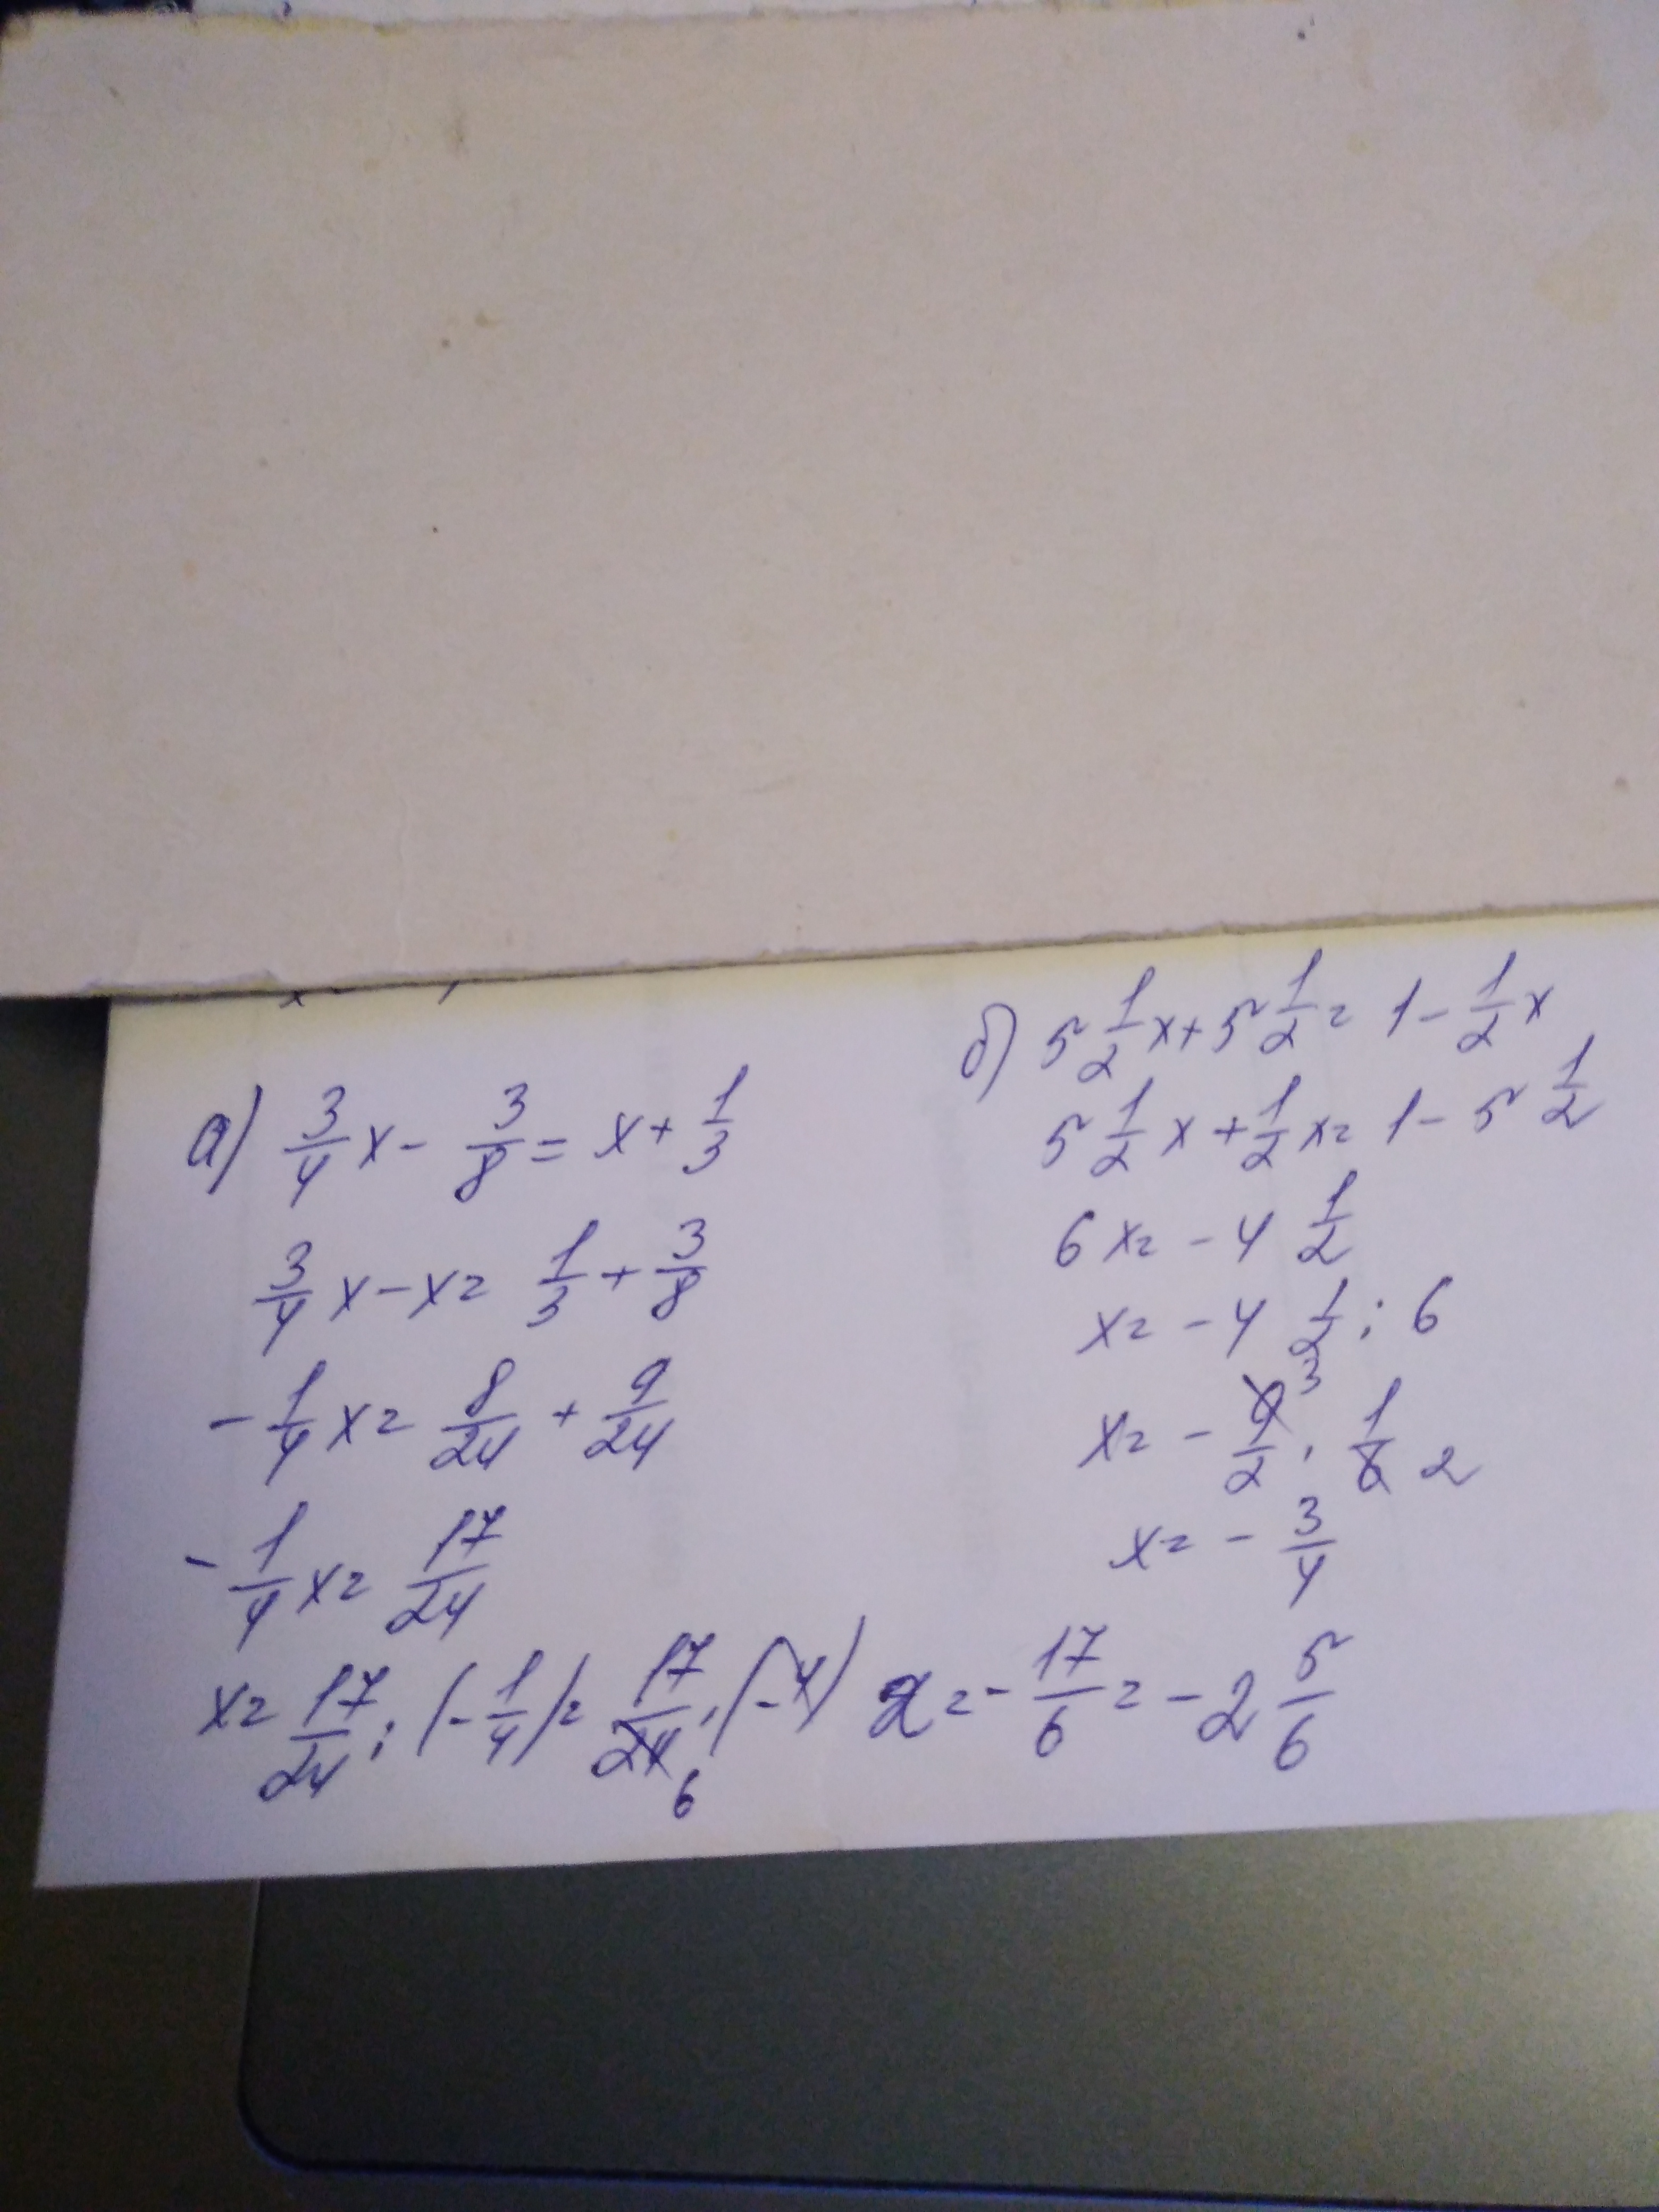 а) 3/4 x - 3/8 = x + 1/3
3/4 x - x = 1/3 + 3/8
- 1/4 x = 8/24 + 9/24
- 1/4 x = 17/24
x = 17/24 : (- 1/4) = 17/24 6 · (-4) = - 17/6 = - 2 5/6
б) 5 1/2 x + 5 1/2 = 1 - 1/2 x
5 1/2 x + 1/2 x = 1 - 5 1/2
6 x = - 4 1/2
x = - 4 1/2 : 6
x = - 9 3/2 · 1/6 2
x = - 3/4